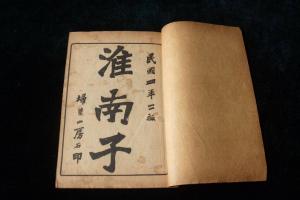 民國四年二
淮南子
掃葉山房石印